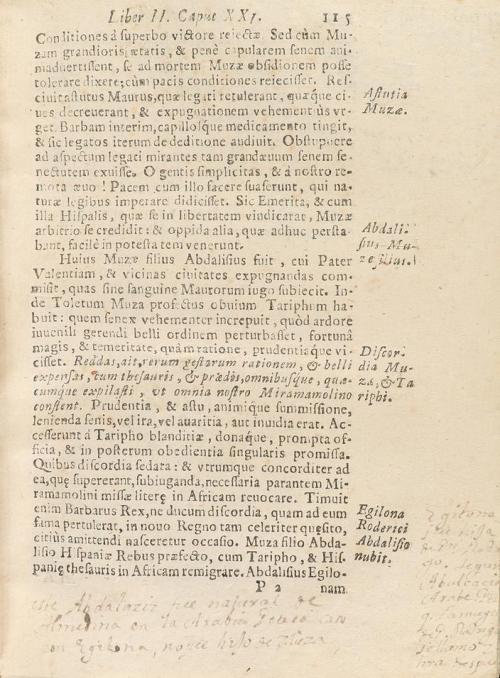 Liber II. Caput XXI. 115
Conditiones à superbo victore reiectæ. Sed cùm Mu-
zam grandioris ætatis, & penè capularem senem ani-
maduertissent, se ad mortem Muzæ obsidionem posse
tolerare dixere; cùm pacis conditiones reiecisset. Res-
ciuit astutus Maurus, quæ legati retulerant, quæque ci-
ues decreuerant, & expugnationem vehementiùs vr-
get. Barbam interim, capillosque medicamento tingit,
& sic legatos iterum de deditione audiuit. Obstupuere
ad aspectum legati mirantes tam grandæuum senem se-
nectutem exuisse. O gentis simplicitas, & à nostro re-
mota æuo! Pacem cum illo facere suaserunt, qui na-
turæ legibus imperare didicisset. Sic Emerita, & cum
illa Hispalis, quæ se in libertatem vindicarat, Muzæ
arbitrio se credidit: & oppida alia, quæ adhuc persta-
bant, facilè in potestatem venerunt.
Astutia
Muzæ.
Abdali-
sius Mu-
zæ filius.
Huius Muzæ filius Abdalisius fuit, cui Pater
Valentiam, & vicinas ciuitates expugnandas com-
misit, quas sine sanguine Maurorum iugo subiecit. In-
de Toletum Muza profectus obuium Tariphum ha-
buit: quem senex vehementer increpuit, quòd ardore
iuuenili gerendi belli ordinem perturbasset, fortunâ
magis, & temeritate, quàm ratione, prudentiaque vi-
cisset. Reddas, ait, rerum gestarum rationem, & belli
expensas, cum thesauris, & prædis, omnibusque, quæ-
cumque expilasti, vt omnia nostro Miramamolino
constent. Prudentia, & astu, animique summissione,
lenienda senis, vel ira, vel auaritia, aut inuidia erat. Ac-
cesserunt à Taripho blanditiæ, donaque, prompta of-
ficia, & in posterum obedientia singularis promissa.
Quibus discordia sedata: & vtrumque concorditer ad
ea, quę supererant, subiuganda, necessaria parantem Mi-
ramamolini missæ literę in Africam reuocare. Timuit
enim Barbarus Rex, ne ducum discordia, quam ad eum
fama pertulerat, in nouo Regno tam celeriter quęsito,
citiùs amittendi nasceretur occasio. Muza filio Abda-
lisio Hispaniæ Rebus præfecto, cum Taripho, & His-
panię thesauris in Africam remigrare. Abdalisius Egilo-
P 2 nam
Discor-
dia Mu-
zæ, & Ta
riphi.
Egilona
Roderici
Abdalisio
nubit.
este Abdalaziz fue natural de
en la Arabia
con Egilona, no fue hijo de Muza
Egilona